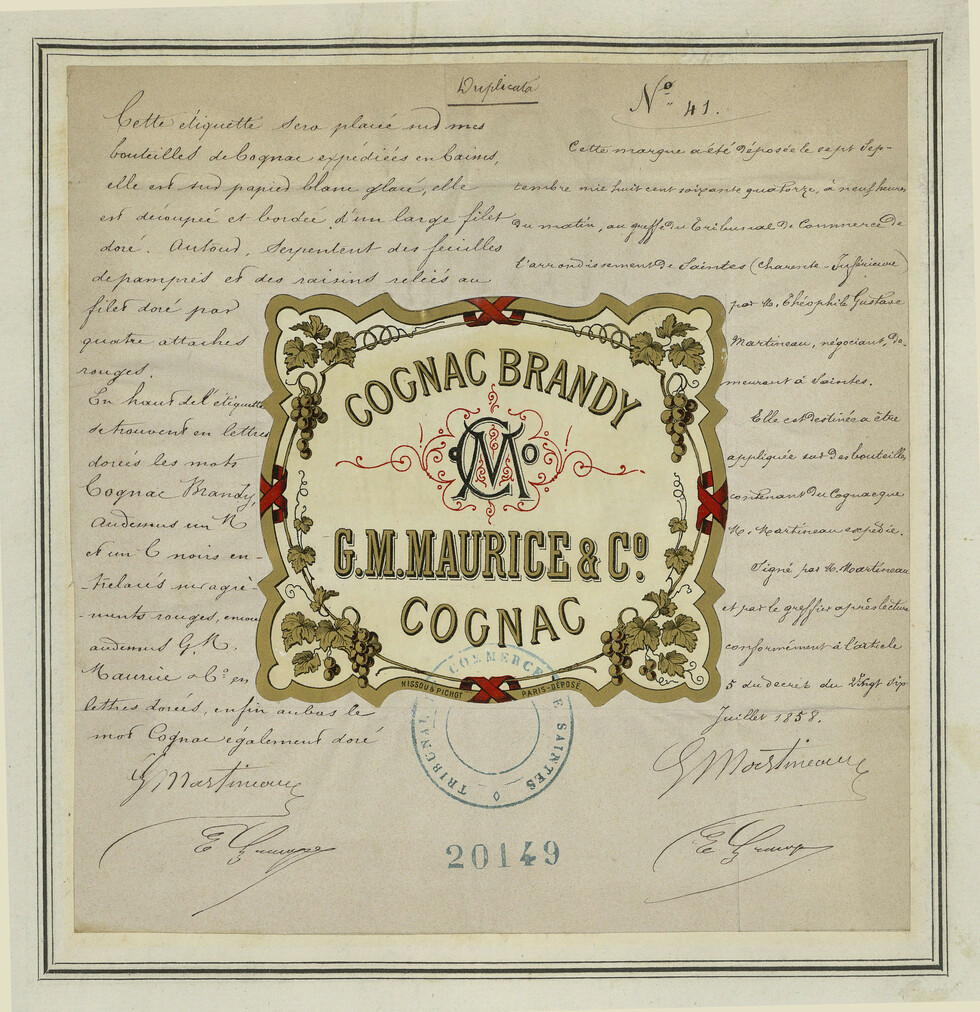 Duplicata
Nº 41.
Cette étiquette sera placée sur mes
bouteilles de Cognac expédiées en Caisses,
elle est sur papier blanc glacé, elle
est découpée et bordée d'un large filet
doré. Autour, serpentent des feuilles
de pampres et des raisins reliés au
filet doré par
quatre attaches
rouges.
En haut de l'étiquette
se trouvent en lettres
dorées les mots
Cognac Brandy,
Audessus un M
et un C noirs en-
-trelacés sur agré-
ments rouges, encore
audessus G.M.
Maurice & Cº. en
lettres dorées, enfin au bas le
mot Cognac également doré
G Martineau
Cette marque a été déposée le sept Sep-
tembre mil huit cent soixante quatorze, à neuf heures
du matin, au greffe du Tribunal de Commerce de
l'arrondissement de Saintes (Charente-Inférieure)
par M. Théophile Gustave
Martineau, négociant, de-
meurant à Saintes.
Elle est destinée a être
appliquée sur des bouteilles
contenant du Cognac que
M. Martineau expédie.
Signé par M. Martineau
et par le greffier après lecture
conformément à l'article
5 du decret du Vingt Six
Juillet 1858.
G Martineau
COGNAC BRANDY
MCº
G.M.MAURICE & Cº.
COGNAC
NISSOU & PICHOT PARIS-DÉPOSÉ
TRIBUNAL DE COMMERCE DE SAINTES
20149